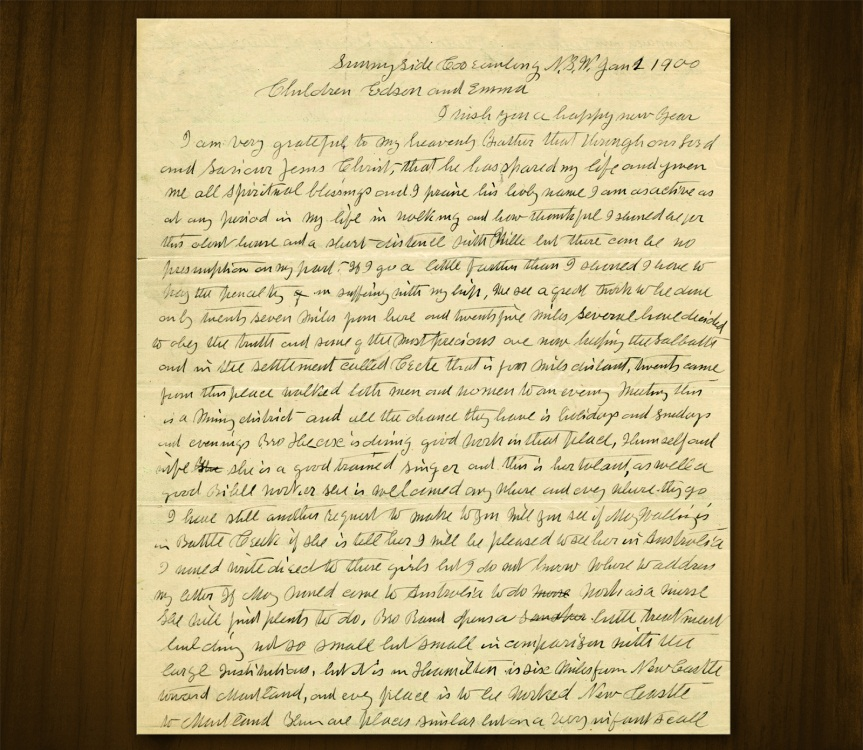 Sunnyside Cooranbong N.S.W. Jan 1 1900
Children Edson and Emma
I wish you a happy new year
I am very grateful to my heavenly Father that through our Lord
and Saviour Jesus Christ, that he has spared my life and given
me all spiritual blessings and I praise his holy name I am as active as
at any period in my life in walking and how thankful I should be for
this about house and a short distance but there can be no
presumption on my part. If I go a little farther than I should I have to
pay the penalty in suffering with my hip, We see a great work to be done
only twenty seven miles from here and twenty five miles, several have decided
to obey the truth and some of the most precious are now keeping the Sabbath
and in the settlement called that is four miles distant, twenty came
from this place walked both men and women to an evening meeting this
is a mining district and all the chance they have is holidays and Sundays
and evenings Bro is doing good work in that place, Himself and
wife she is a good trained singer and this is her talent, as well a
good Bible worker she is welcomed any where and every where they go
I have still another request to make to you will you see if May Walling is
in Battle Creek if she is tell her I will be pleased to see her in Australia
I would write direct to these girls but I do not know where to address
my letter If May would come to Australia to do work as a nurse
She will find plenty to do, Bro Rand opens a little treatment
building not so small but small in comparison with the
large Institutions, but it is in Hamilton is six miles from New Castle
toward Maitland, and every place is to be worked New Castle
to Maitland are places similar but on a very infant scale